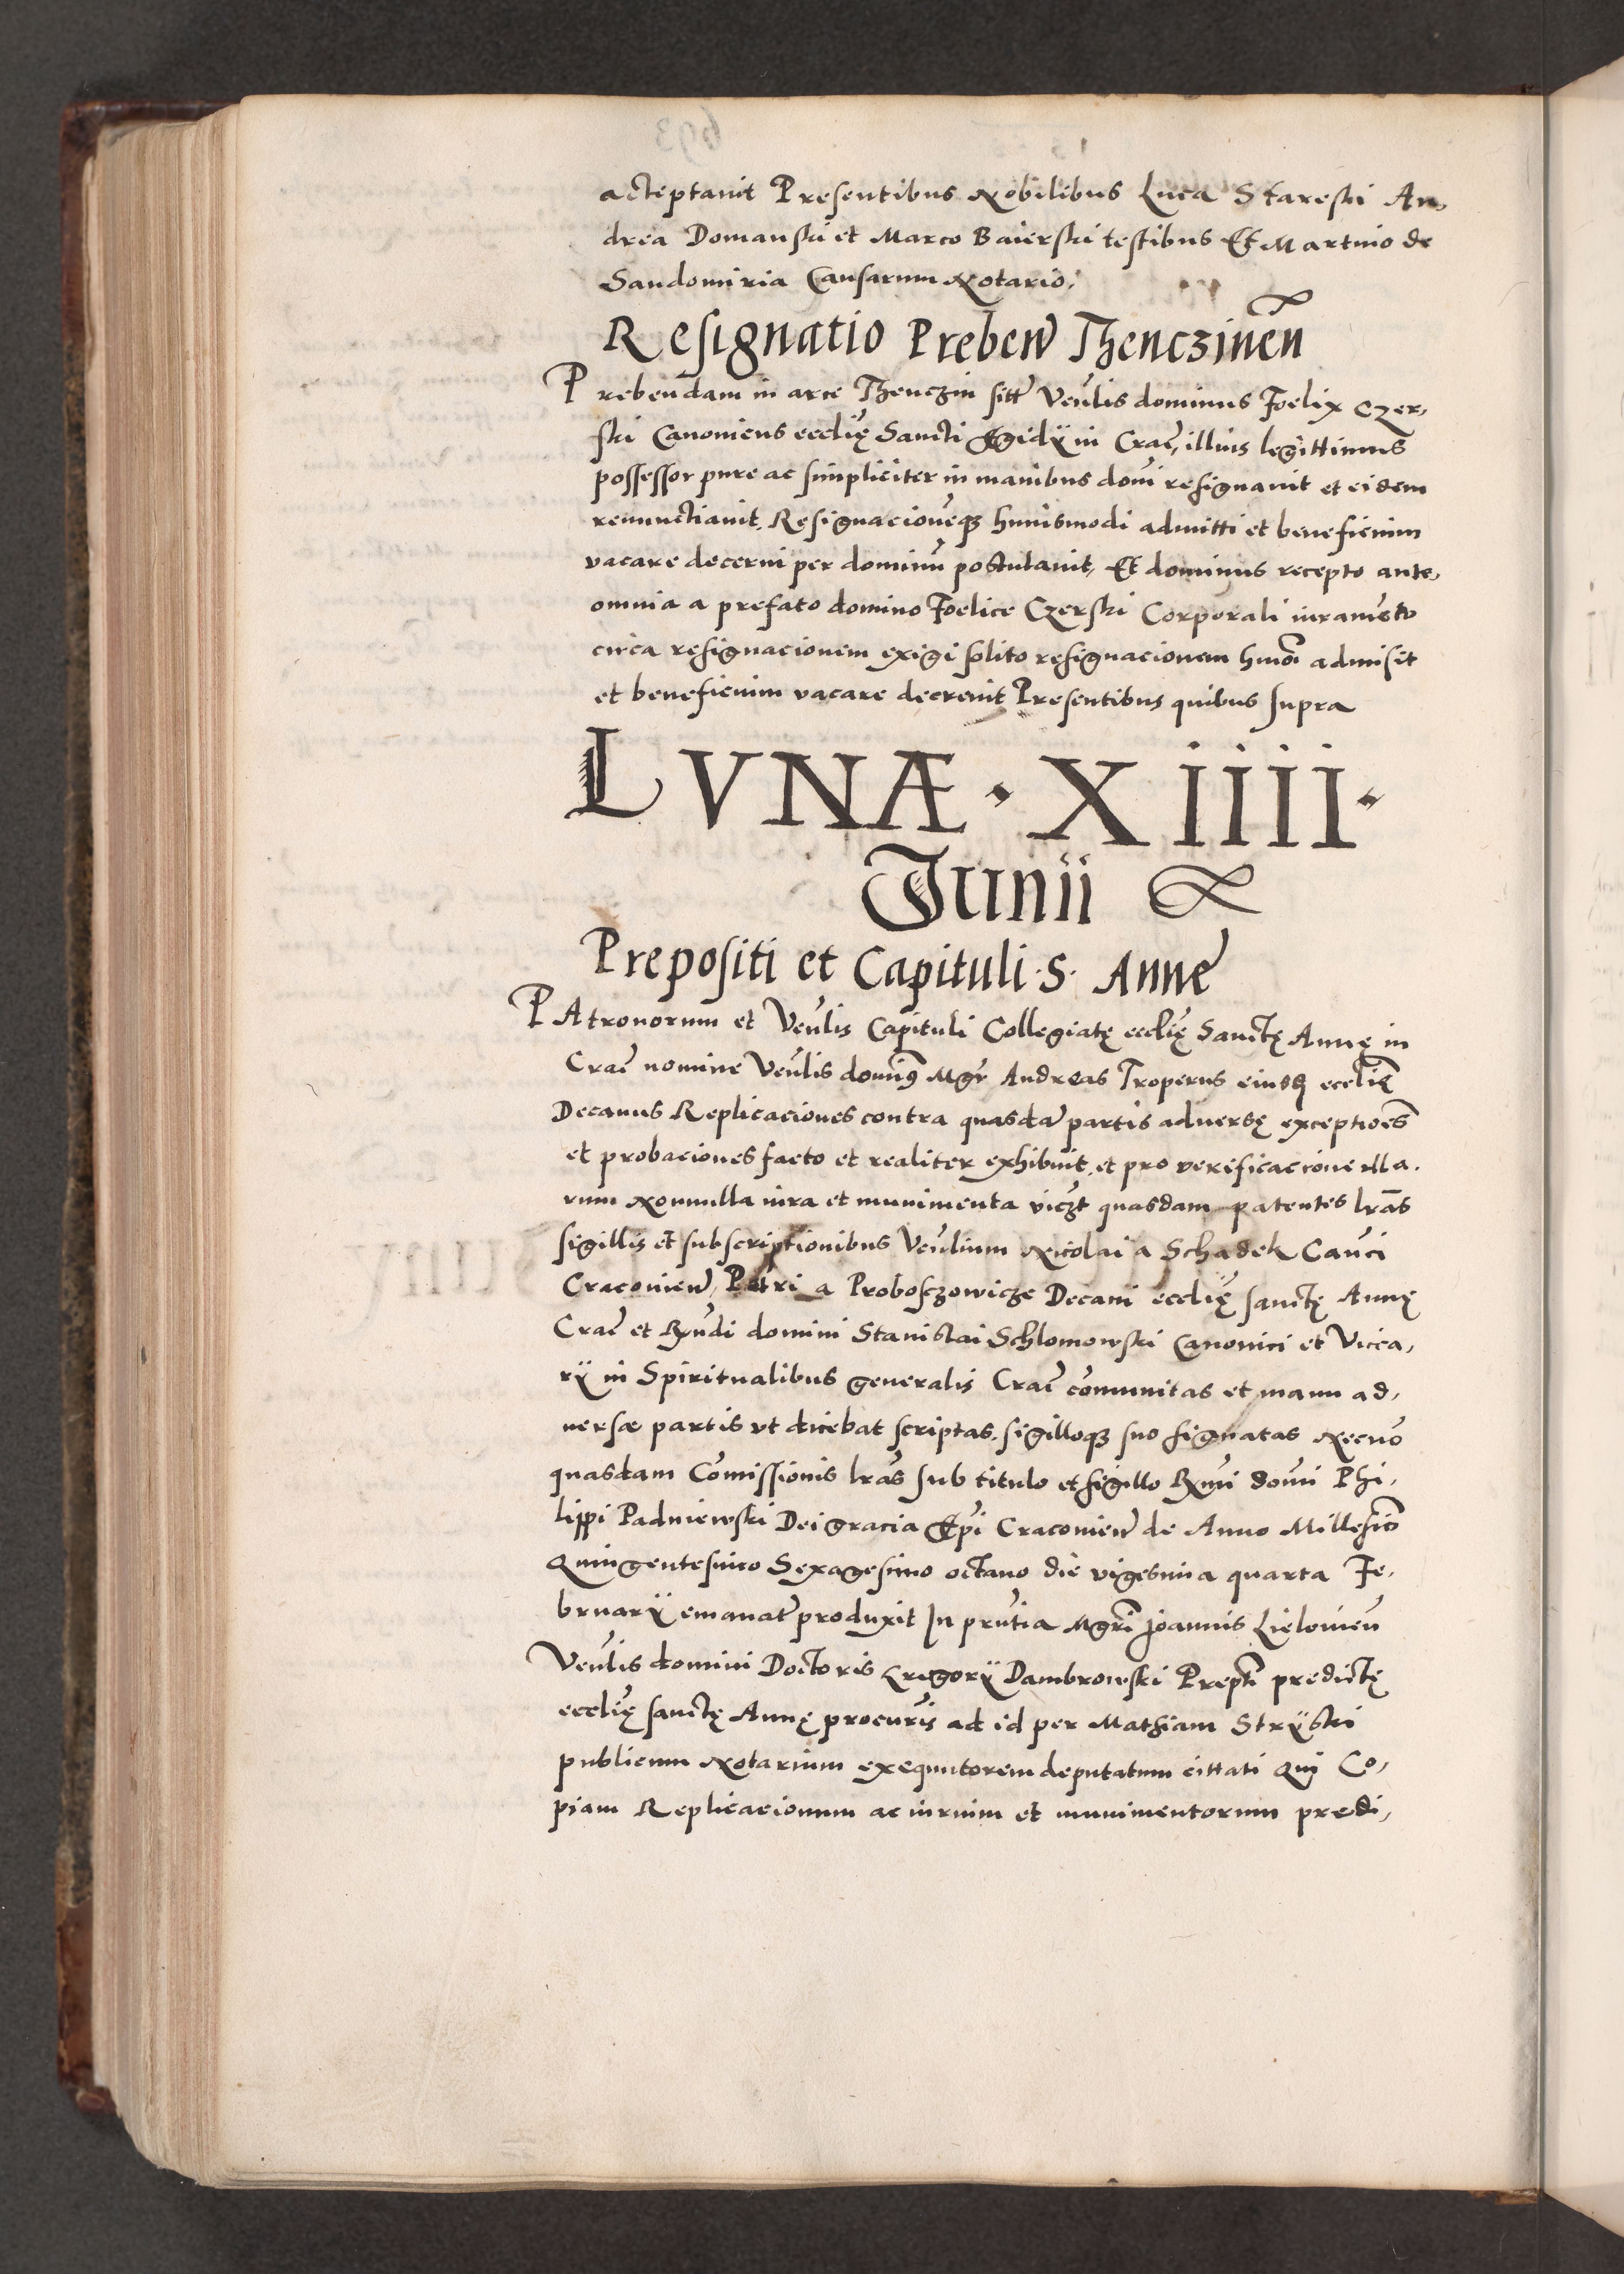 acceptavit Presentibus Nobilibus Luca Stareski An,
drea Domanski et Marco Baierski testibus Et Martino de
Sandomiria Causarum Notario.
Resignatio Preben̄ Thenczinen̄
Prebendam in arce Thenczin sitt̄ Ven̄lis dominus Foelix Czer,
ski Canonicus ecclię Sancti Egidÿ in Crac̄, illius legittimus
possessor pure ac simpliciter in manibus dōni resignavit et eidem
renunctiavit. Resignacionemq3 huiusmodi admitti et beneficium
vacare decerni per dominū postulavit, Et dominus recepto ante,
omnia a prefato domino Foelice Czerski Corporali iuramēto
circa resignacionem exigi solito resignacionem hmōi admisit
et beneficium vacare decrevit Presentibus quibus supra
LVNÆ · XIIII ·
Junii
Prepositi et Capituli · S · Anne
PAtronorum et Ven̄lis Capituli Collegiatę ecclię Sanctę Annę in
Crac̄ nomine Ven̄lis domin9 Mgr̄ Andreas Troperus eiusd ecclię
Decanus Replicaciones contra quasdā partis adversę exceptiōēs
et probaciones facto et realiter exhibuit, et pro verificacione illa.
rum Nonnulla iura et munimenta vicz̄t quasdam patentes lrās
sigillis et subscriptionibus Ven̄lium Nicolai a Schadek Can̄ci
Cracovien̄, Petri a Proboszowicze Decani ecclię sanctę Annę
Crac̄ et Rn̄di domini Stanislai Schlomowski Canonici et Vicca,
rÿ in Spiritualibus generalis Crac̄ cōmunitas et manu ad,
versæ partis vt dicebat scriptas. sigilloq3 suo signatas Necnō
quasdam Cōmissionis lrās sub titulo et sigillo Rm̄i dōni Phi,
lippi Padniewski Dei gracia Ep̄i Cracovien̄ de Anno Millesīo
Quingentesimo Sexagesimo octavo die vigesima quarta Fe,
bruarÿ emanat̄ produxit In pn̄tia Mgr̄i Joannis Lielovien̄
Ven̄lis domini Doctoris Gregorÿ Dambrowski Prepti predictę
ecclię sanctę Annę procur̄is ad id per Mathiam Strÿski
publicum Notarium exequutorem deputatum cittati Qui Co,
piam Replicacionum ac iurium et munimentorum predi,